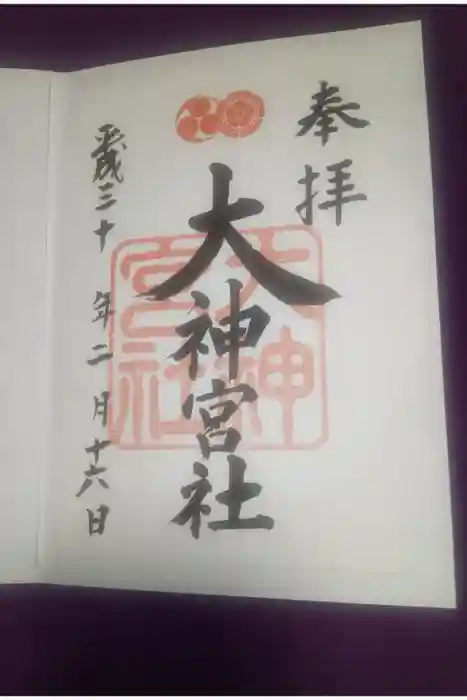 奉拝
大神宮社
大神
宮社
平成三十年二月十六日